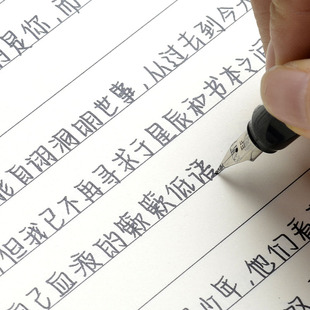 的是你，而
能自诩洞明世事，从过去到今
但我已不再寻求于星辰和书本之
自己血液的簌簌低语
少年，他们看